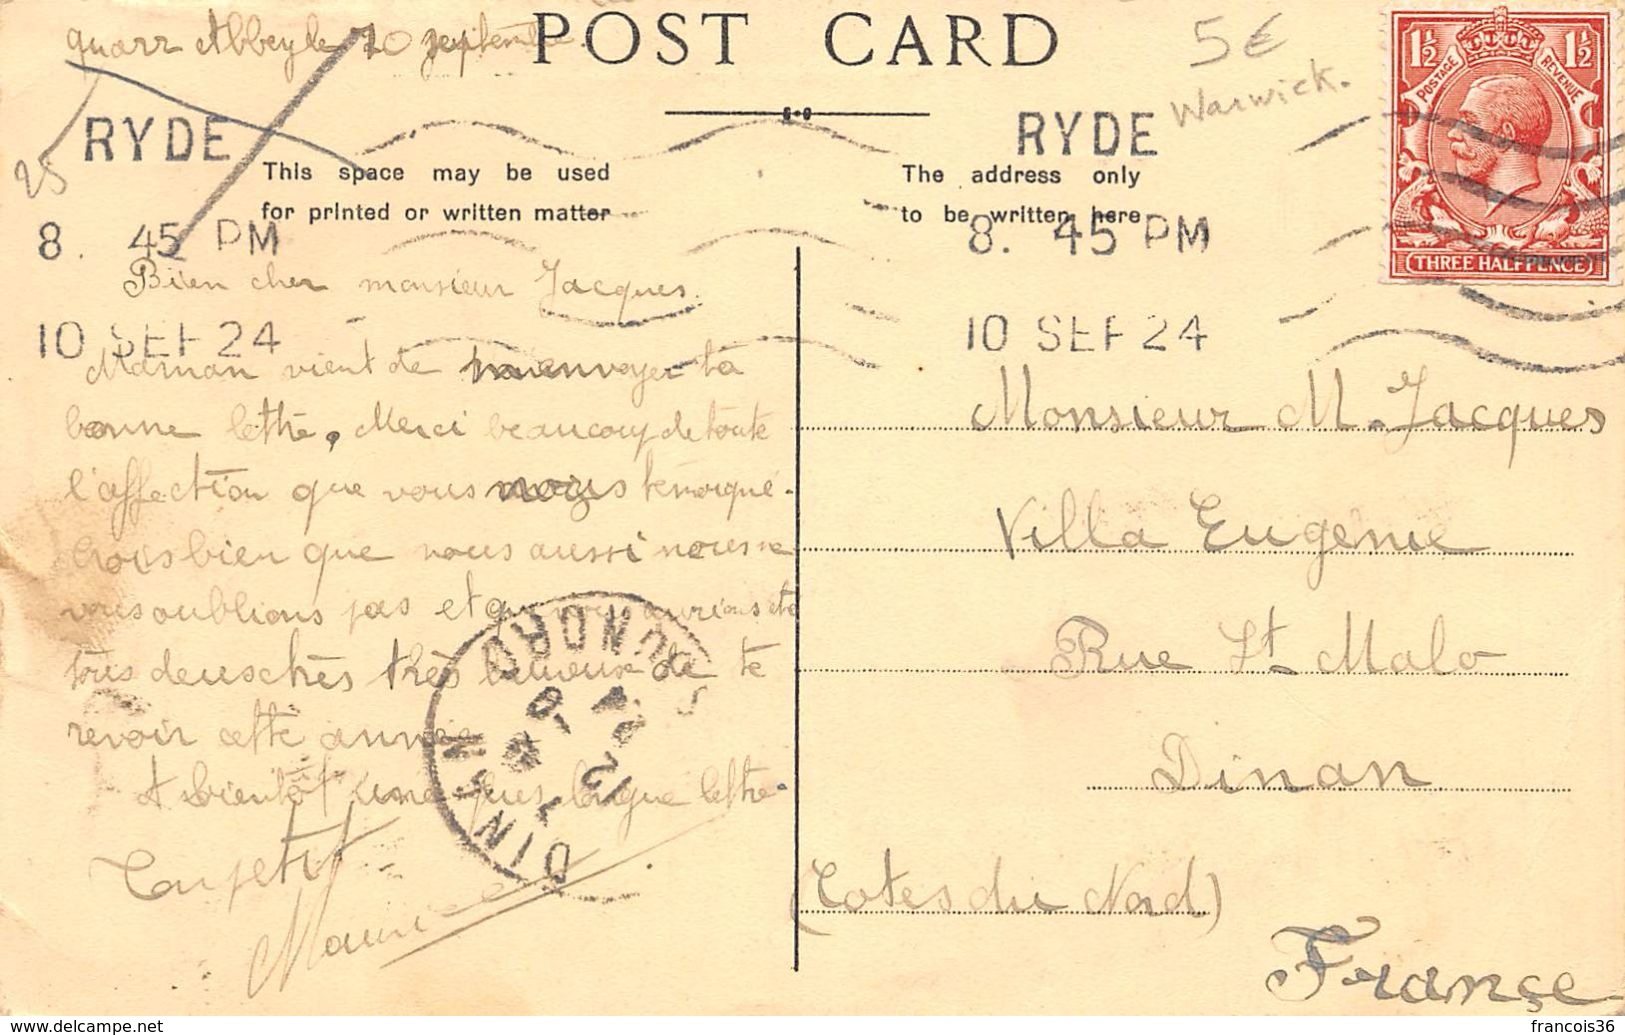 Quarr Abbey le 10 septembre.
POST CARD
5€
Warwick.
1½ 1½
POSTAGE REVENUE
THREE HALFPENCE
25
RYDE
8. 45 PM
10 SEP 24
RYDE
8. 45 PM
10 SEP 24
This space may be used
for printed or written matter
The address only
to be written here
Bien cher monsieur Jacques
Maman vient de m'envoyer ta
bonne lettre. Merci beaucoup de toute
l'affection que vous nous témoigne.
Crois bien que nous aussi nous ne
vous oublions pas et que nous aurions été
tous deux très très heureux de te
revoir cette année
A bientôt une plus longue lettre.
Ton petit
Maurice
DINAN
COTES DU NORD
12
24
Monsieur M. Jacques
Villa Eugenie
Rue St Malo
Dinan
(Cotes du Nord)
France
delcampe.net
francois36